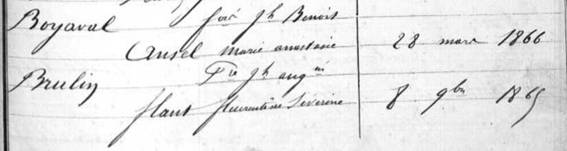 Boyaval fois jh Benoit
Ansel marie anastasie 28 mars 1866
Brulin Pre jh augin
flant florentine Séverine 8 9bre 1865